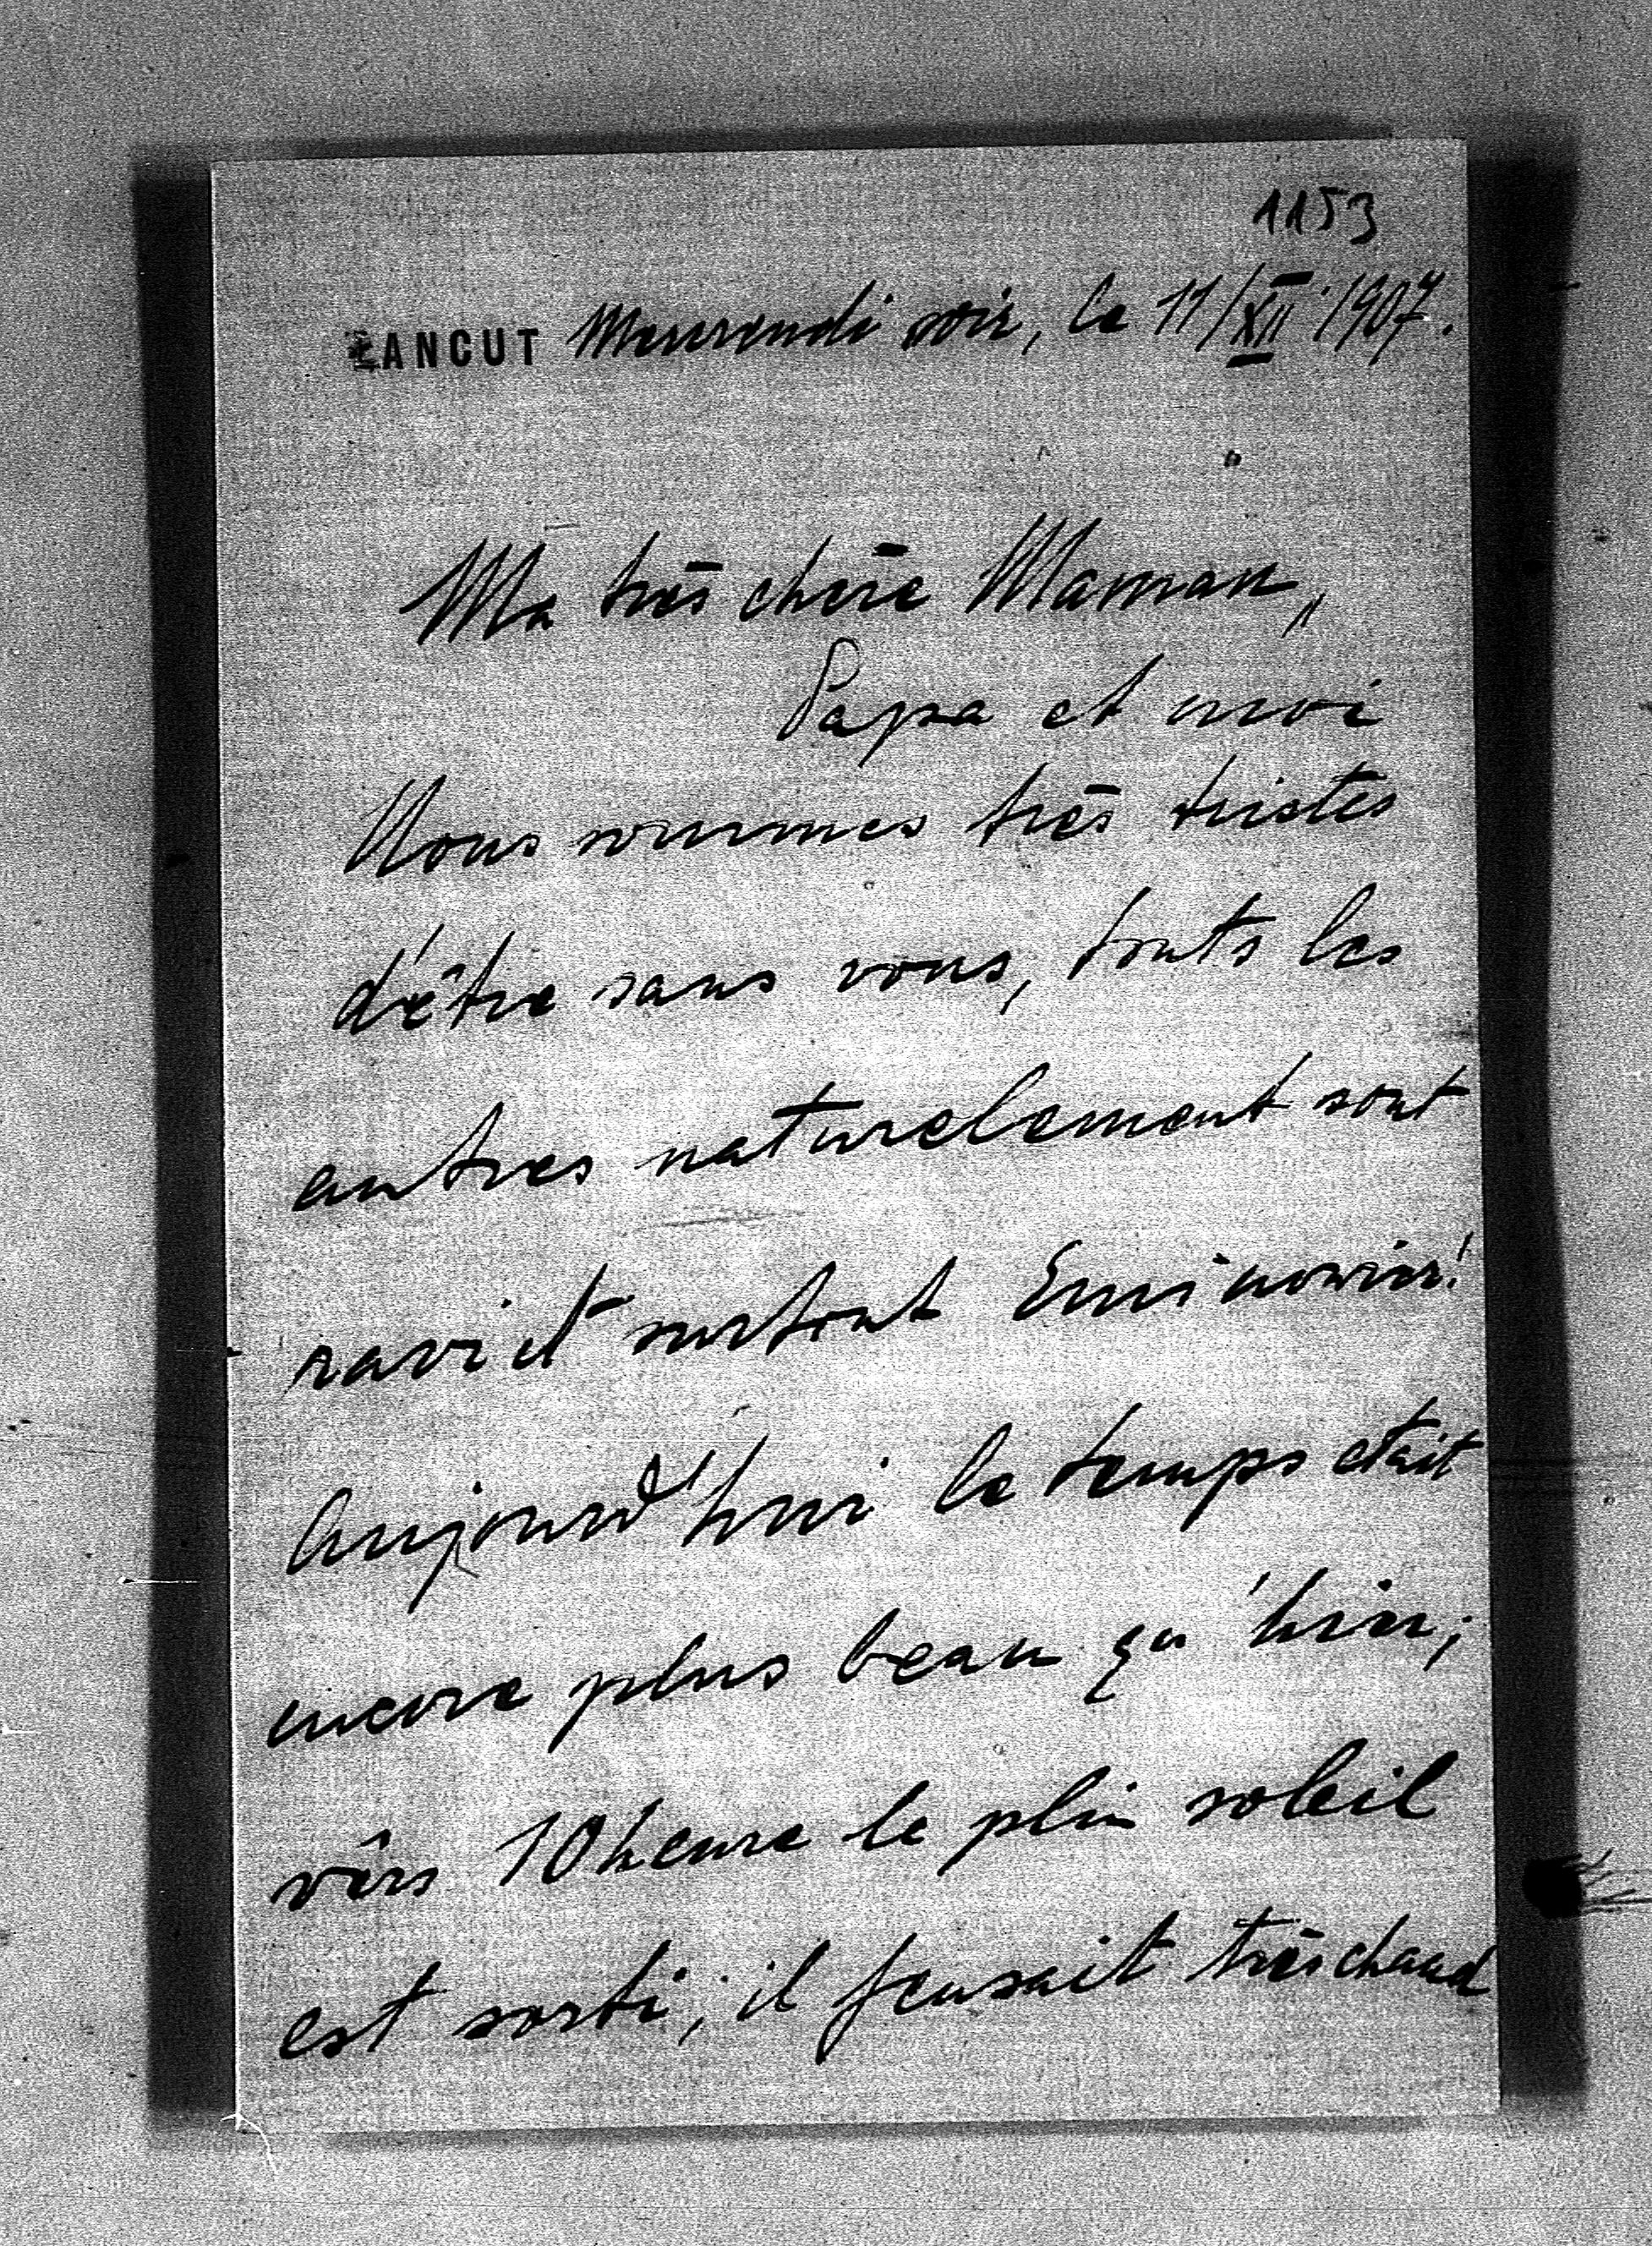 1153
ŁANCUT Mercredi soir, le 11/XII 1907.
Ma très chère Maman,
Papa et moi
Nous sommes très tristes
d'être sans vous, touts les
autres naturelement sont
ravi et surtout
Aujourd'hui le temps etait
encore plus beau qu'hier;
vêrs 10 heure le plin soleil
est sorti; il feusait très chaud